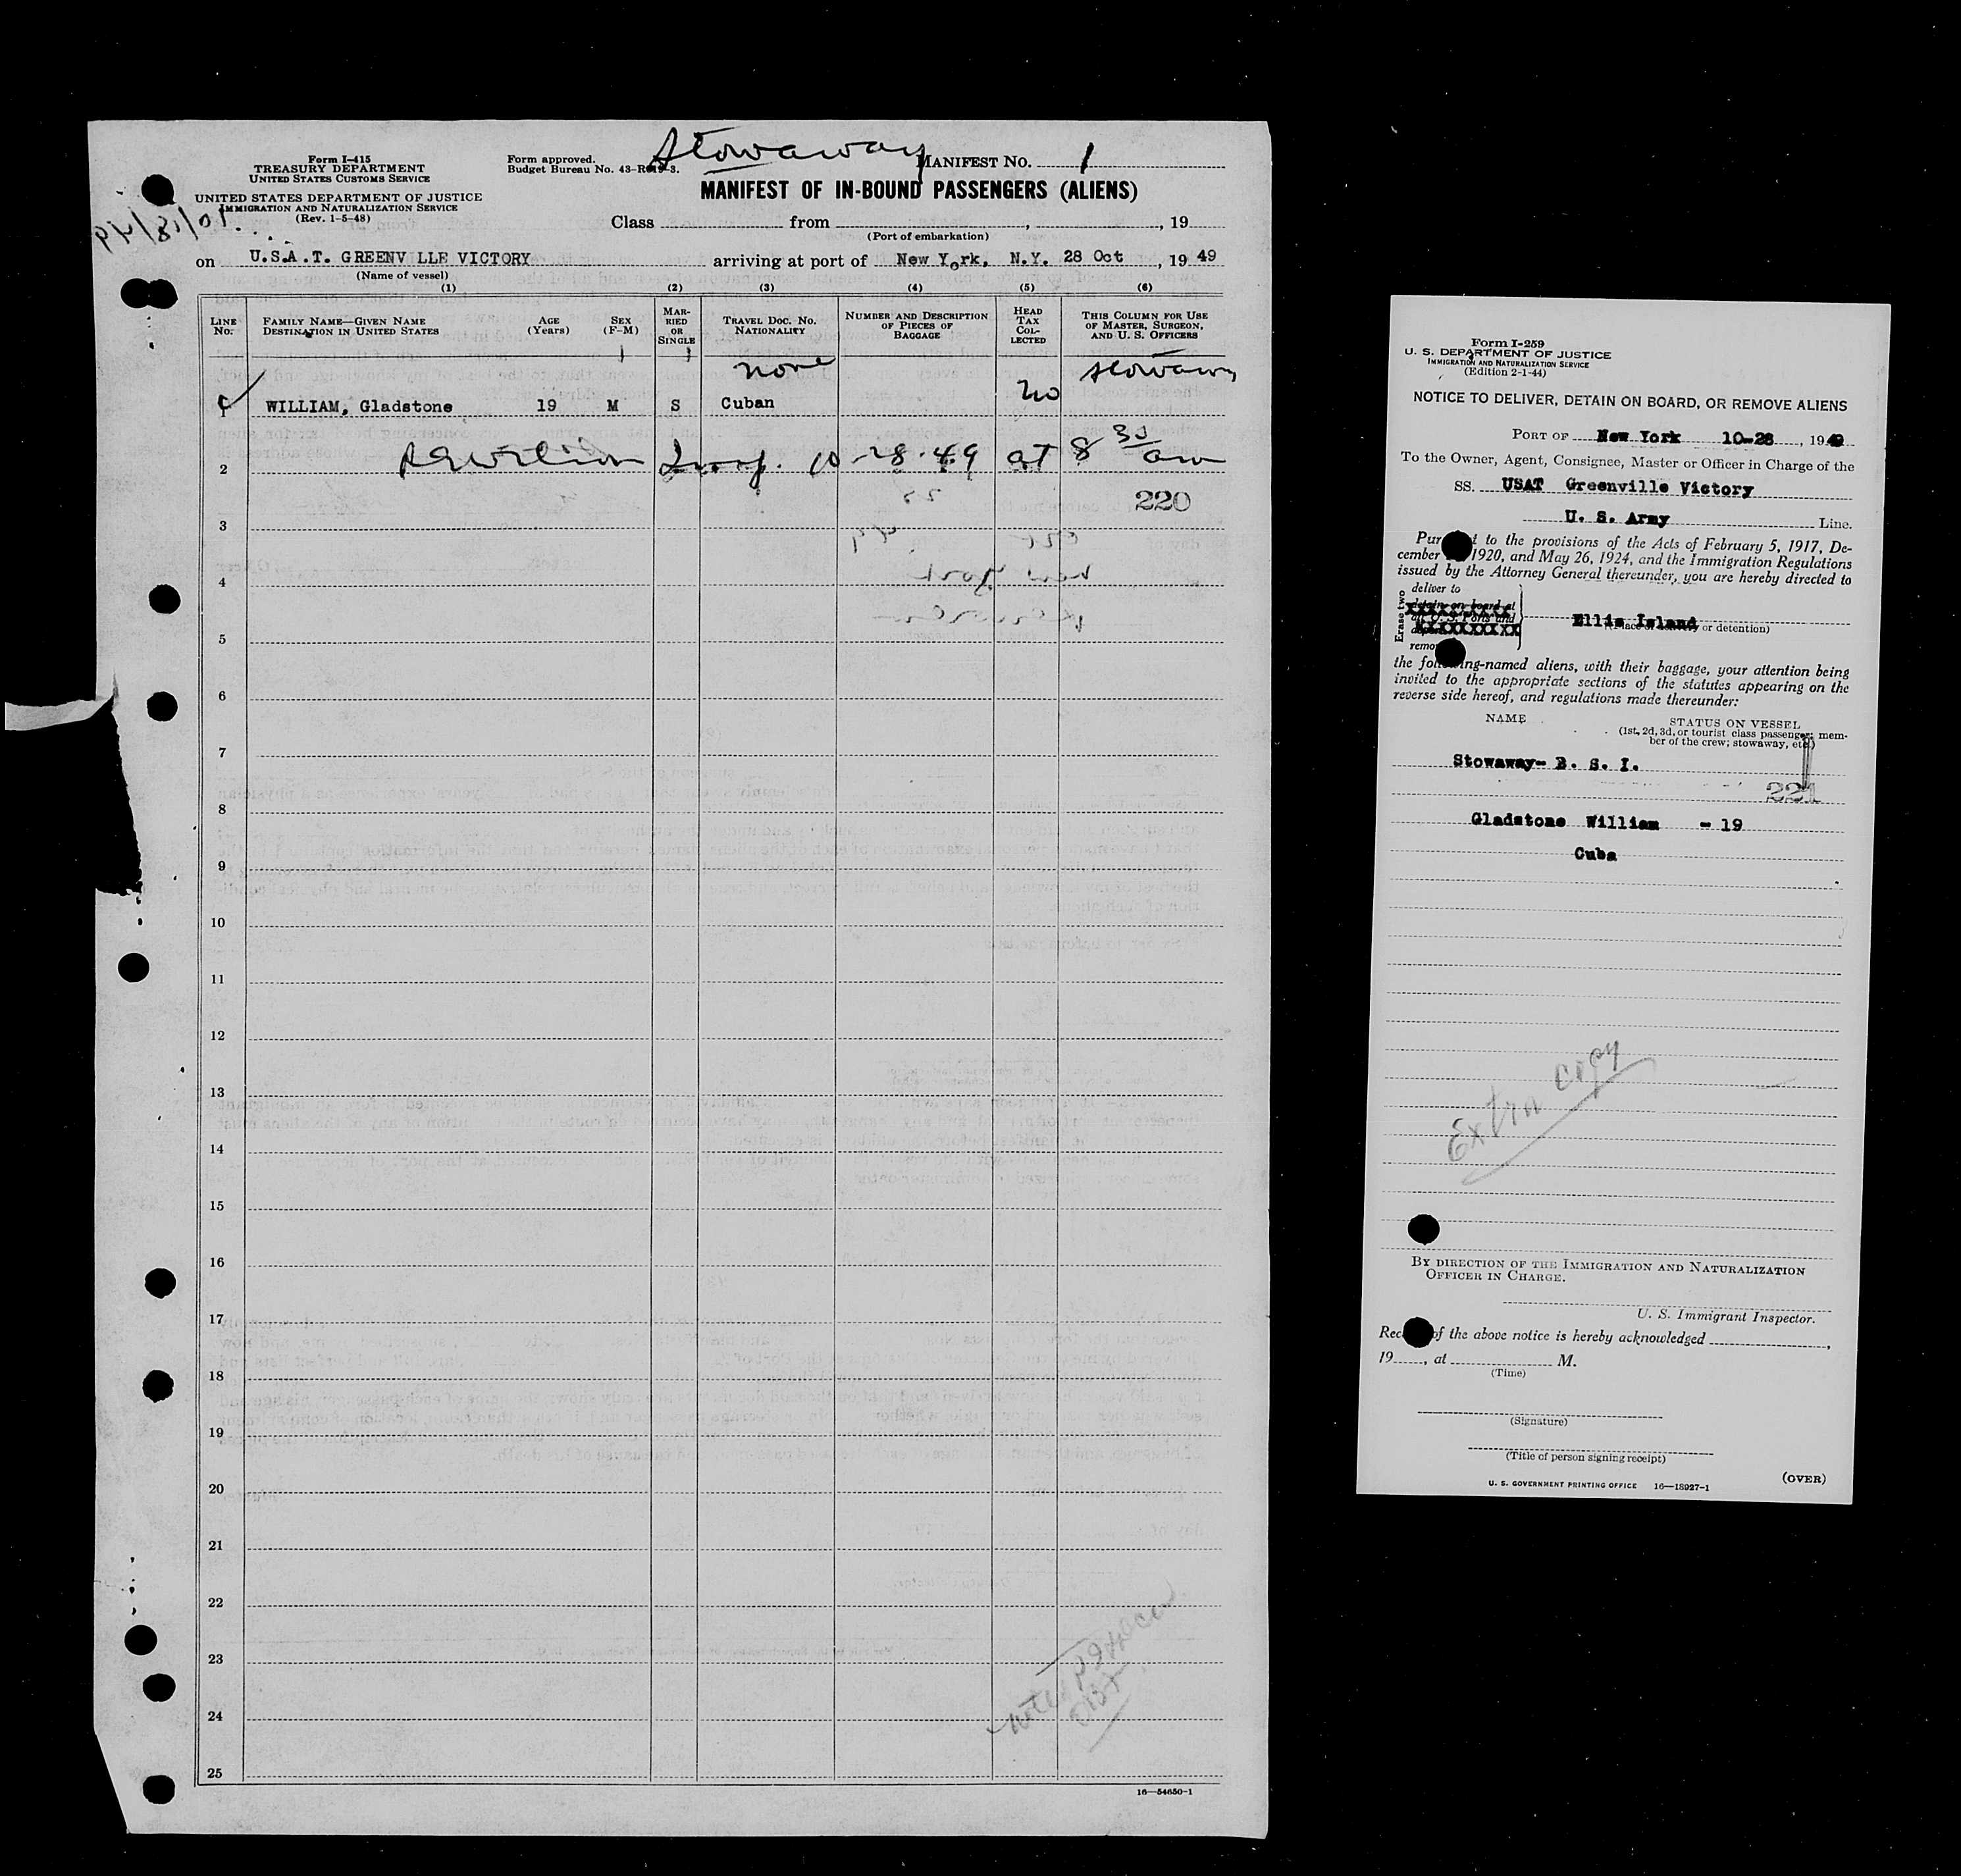 Stowaway
Form I-415
TREASURY DEPARTMENT
UNITED STATES CUSTOMS SERVICE
UNITED STATES DEPARTMENT OF JUSTICE
IMMIGRATION AND NATURALIZATION SERVICE
(Rev. 1-5-48)
Form approved.
Budget Bureau No. 43-R019-3.
MANIFEST NO. 1
MANIFEST OF IN-BOUND PASSENGERS (ALIENS)
Class from , , 19
(Port of embarkation)
on U.S.A.T. GREENV LLE VICTORY arriving at port of New York, N.Y. 28 Oct , 19 49
(Name of vessel)
(1) (2) (3) (4) (5) (6)
LINE NO. FAMILY NAME—GIVEN NAME DESTINATION IN UNITED STATES AGE (Years) SEX (F-M) MARRIED OR SINGLE TRAVEL DOC. NO. NATIONALITY NUMBER AND DESCRIPTION OF PIECES OF BAGGAGE HEAD TAX COLLECTED THIS COLUMN FOR USE OF MASTER, SURGEON, AND U. S. OFFICERS
none Stowaway
WILLIAM, Gladstone 19 M S Cuban no
2 Insp. 10-28-49 at 8 30 am
220
3
4
5
6
7
8
9
10
11
12
13
14
15
16
17
18
19
20
21
22
23
24
25
16—54650-1
Form I-259
U. S. DEPARTMENT OF JUSTICE
IMMIGRATION AND NATURALIZATION SERVICE
(Edition 2-1-44)
NOTICE TO DELIVER, DETAIN ON BOARD, OR REMOVE ALIENS
PORT OF New York 10-28, 1949
To the Owner, Agent, Consignee, Master or Officer in Charge of the
SS. USAT Greenville Victory
U. S. Army Line.
Pur t to the provisions of the Acts of February 5, 1917, De-
cember 1920, and May 26, 1924, and the Immigration Regulations
issued by the Attorney General thereunder, you are hereby directed to
Erase two
deliver to
detain on board at
all U. S. Ports and
remo
Ellis Island
(Place of delivery or detention)
the following-named aliens, with their baggage, your attention being
invited to the appropriate sections of the statutes appearing on the
reverse side hereof, and regulations made thereunder:
NAME STATUS ON VESSEL
(1st, 2d, 3d, or tourist class passenger; mem-
ber of the crew; stowaway, etc.)
Stowaway- B. S. I.
221
Gladstone William - 19
Cuba
Extra copy
BY DIRECTION OF THE IMMIGRATION AND NATURALIZATION
OFFICER IN CHARGE.
U. S. Immigrant Inspector.
Rec of the above notice is hereby acknowledged ,
19 , at M.
(Time)
(Signature)
(Title of person signing receipt)
U. S. GOVERNMENT PRINTING OFFICE 16—18927-1
(OVER)